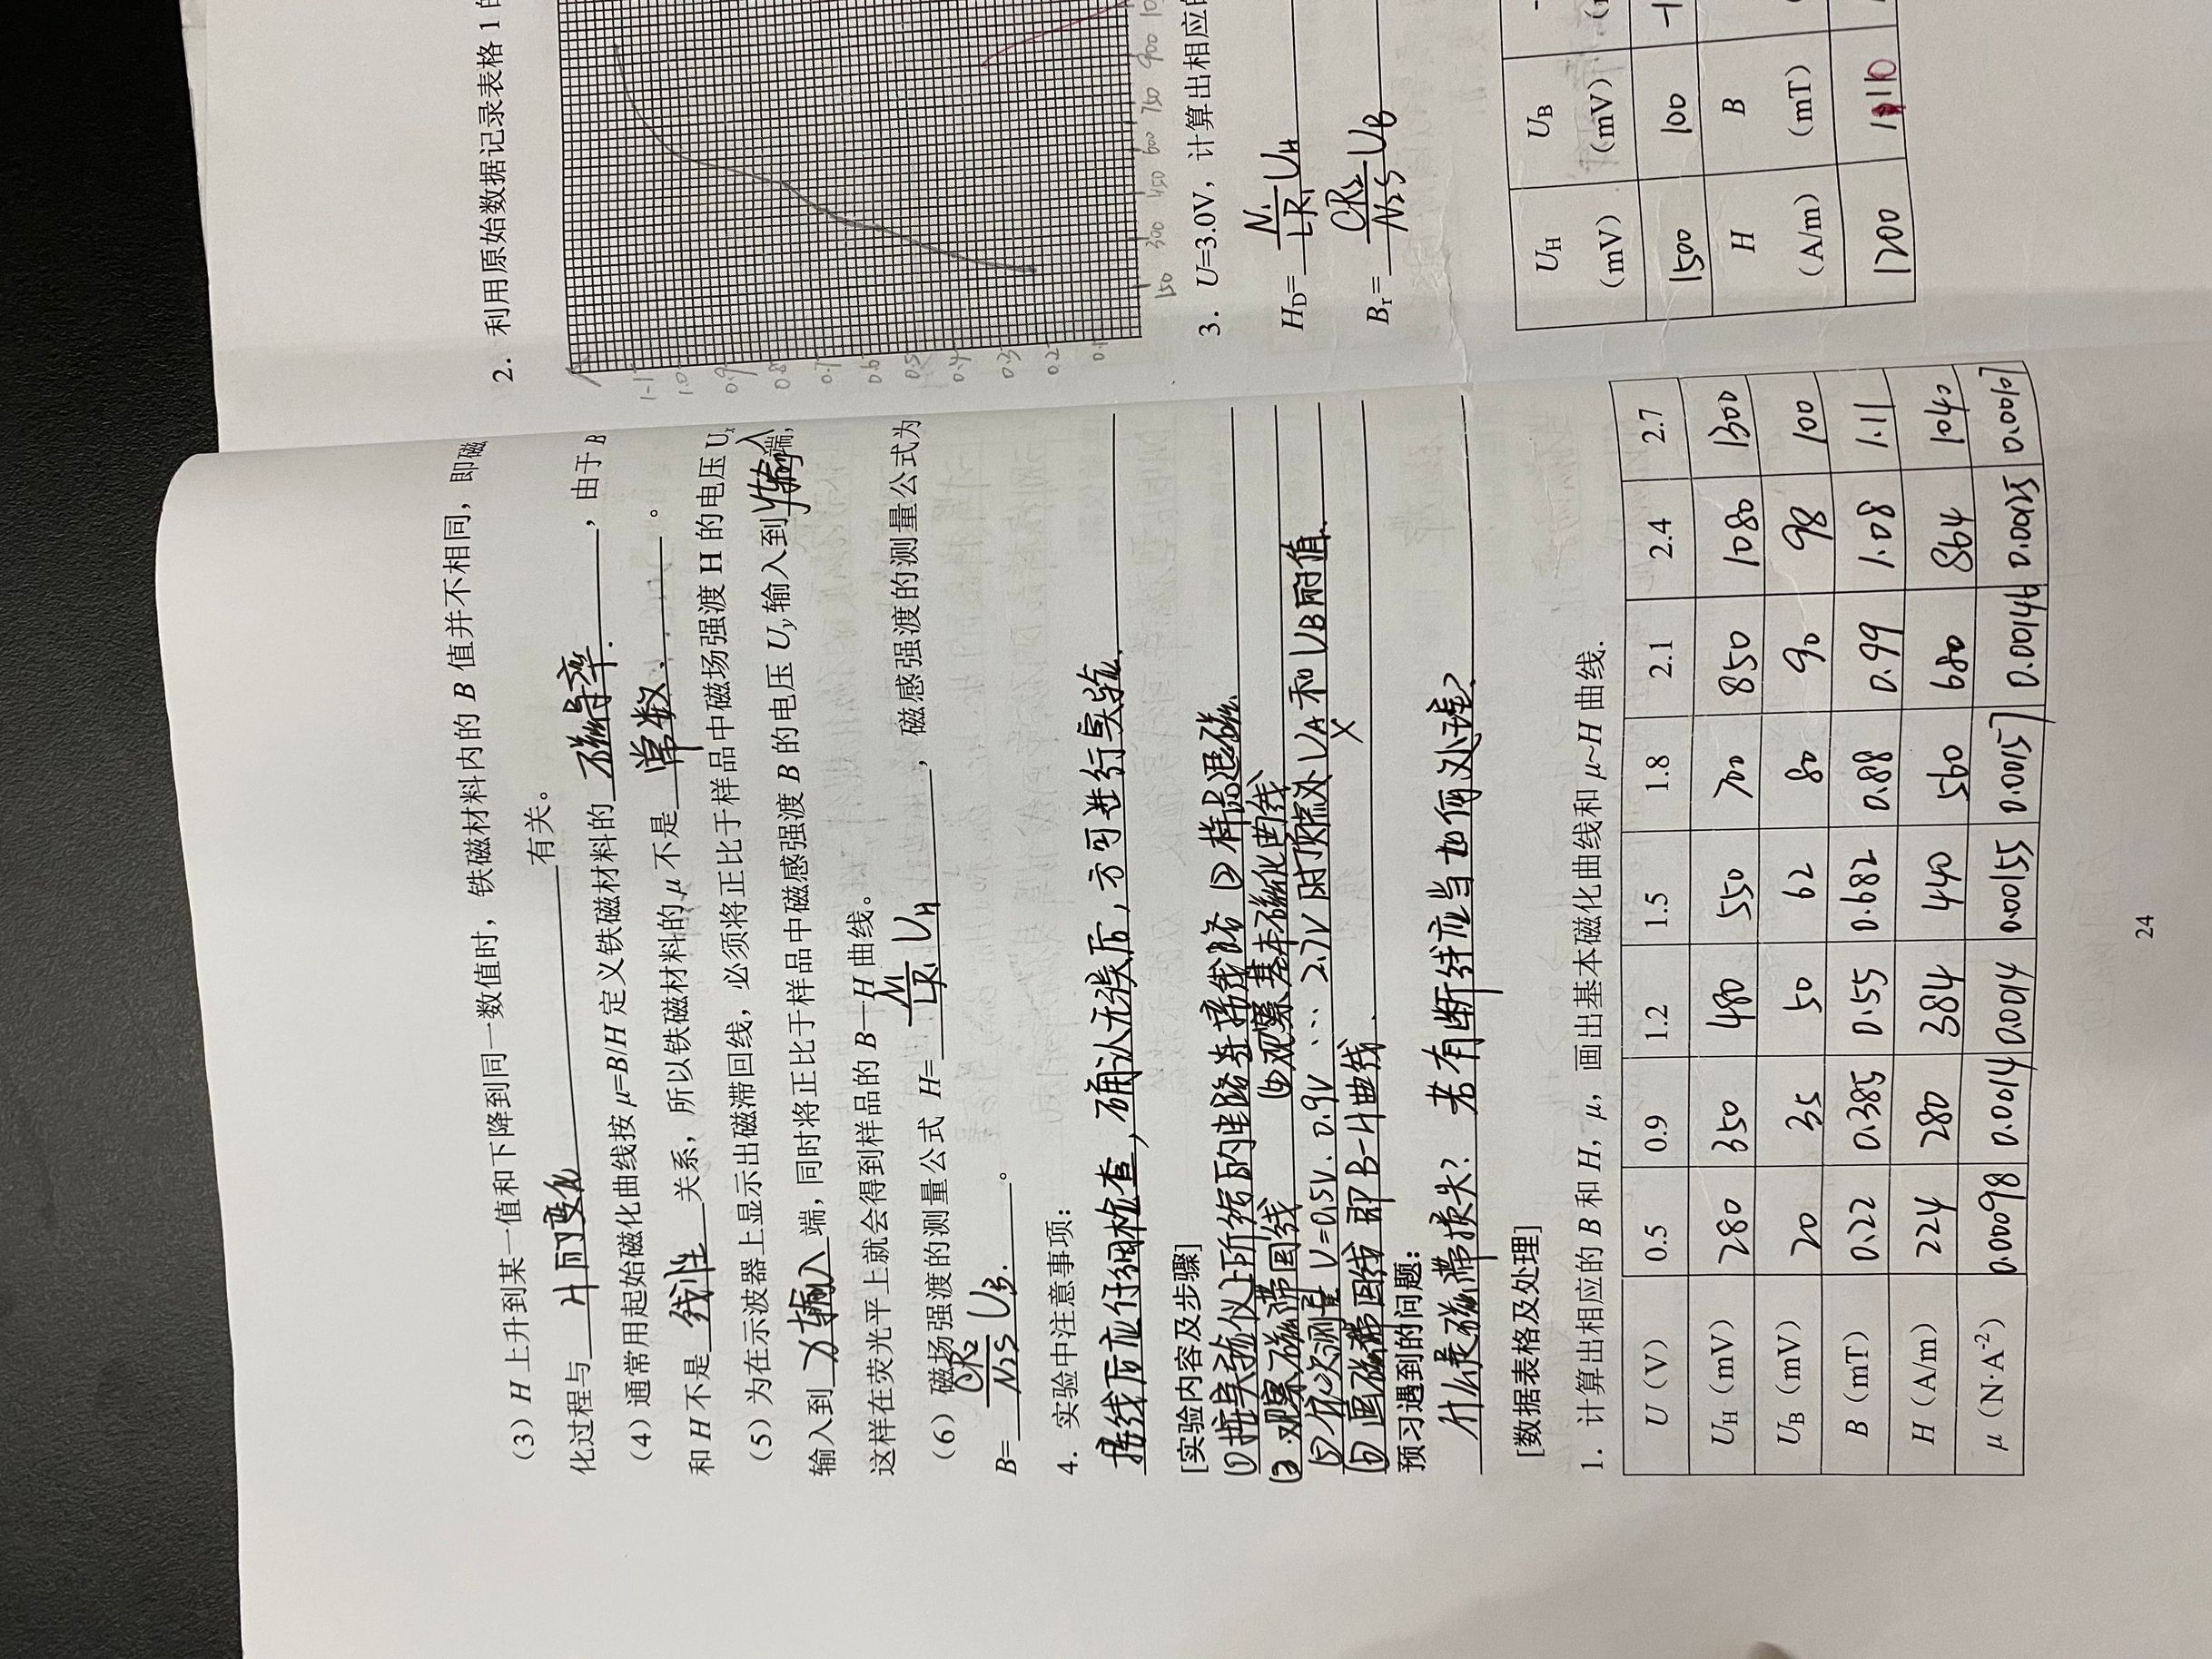 （3）H 上升到某一值和下降到同一数值时，铁磁材料内的 B 值并不相同，即磁
化过程与 H的变化 有关。
（4）通常用起始磁化曲线按 μ=B/H 定义铁磁材料的 磁导率. ，由于 B
和 H 不是 线性 关系，所以铁磁材料的 μ 不是 常数. 。
（5）为在示波器上显示出磁滞回线，必须将正比于样品中磁场强渡 H 的电压 Ux
输入到 X输入 端，同时将正比于样品中磁感强渡 B 的电压 Uy 输入到 y输入 端，
这样在荧光平上就会得到样品的 B—H 曲线。
（6）磁场强渡的测量公式 H= N1/LR1 UH ，磁感强渡的测量公式为
B= CR2/N2S UB. 。
4．实验中注意事项：
接线后应仔细检查，确认无误后，方可进行实验.
[实验内容及步骤]
①按实验仪上所给的电路连接线路 ②样品退磁
③观察磁滞回线 ④观察基本磁化曲线
⑤依次测量 U=0.5V. 0.9V … 2.7V 时顶点处 UA 和 UB 的值.
X
⑥画磁滞回线 即B-H曲线.
预习遇到的问题：
什么是磁滞损失？ 若有断线应当如何处理？
[数据表格及处理]
1．计算出相应的 B 和 H，μ，画出基本磁化曲线和 μ~H 曲线.
U（V） 0.5 0.9 1.2 1.5 1.8 2.1 2.4 2.7
UH（mV） 280 350 480 550 700 850 1080 1300
UB（mV） 20 35 50 62 80 90 98 100
B（mT） 0.22 0.385 0.55 0.682 0.88 0.99 1.08 1.11
H（A/m） 224 280 384 440 560 680 864 1040
μ（N·A-2） 0.00098 0.0014 0.0014 0.00155 0.00157 0.00146 0.00125 0.00107
24
2．利用原始数据记录表格 1
1.1
1.0
0.9
0.8
0.7
0.6
0.5
0.4
0.3
0.2
0.1
150 300 450 600 750 900
3．U=3.0V，计算出相应
HD= N1/LR1 UH
Br= CR2/N2S UB
UH UB
（mV） （mV）
1500 100
H B
（A/m） （mT）
1200